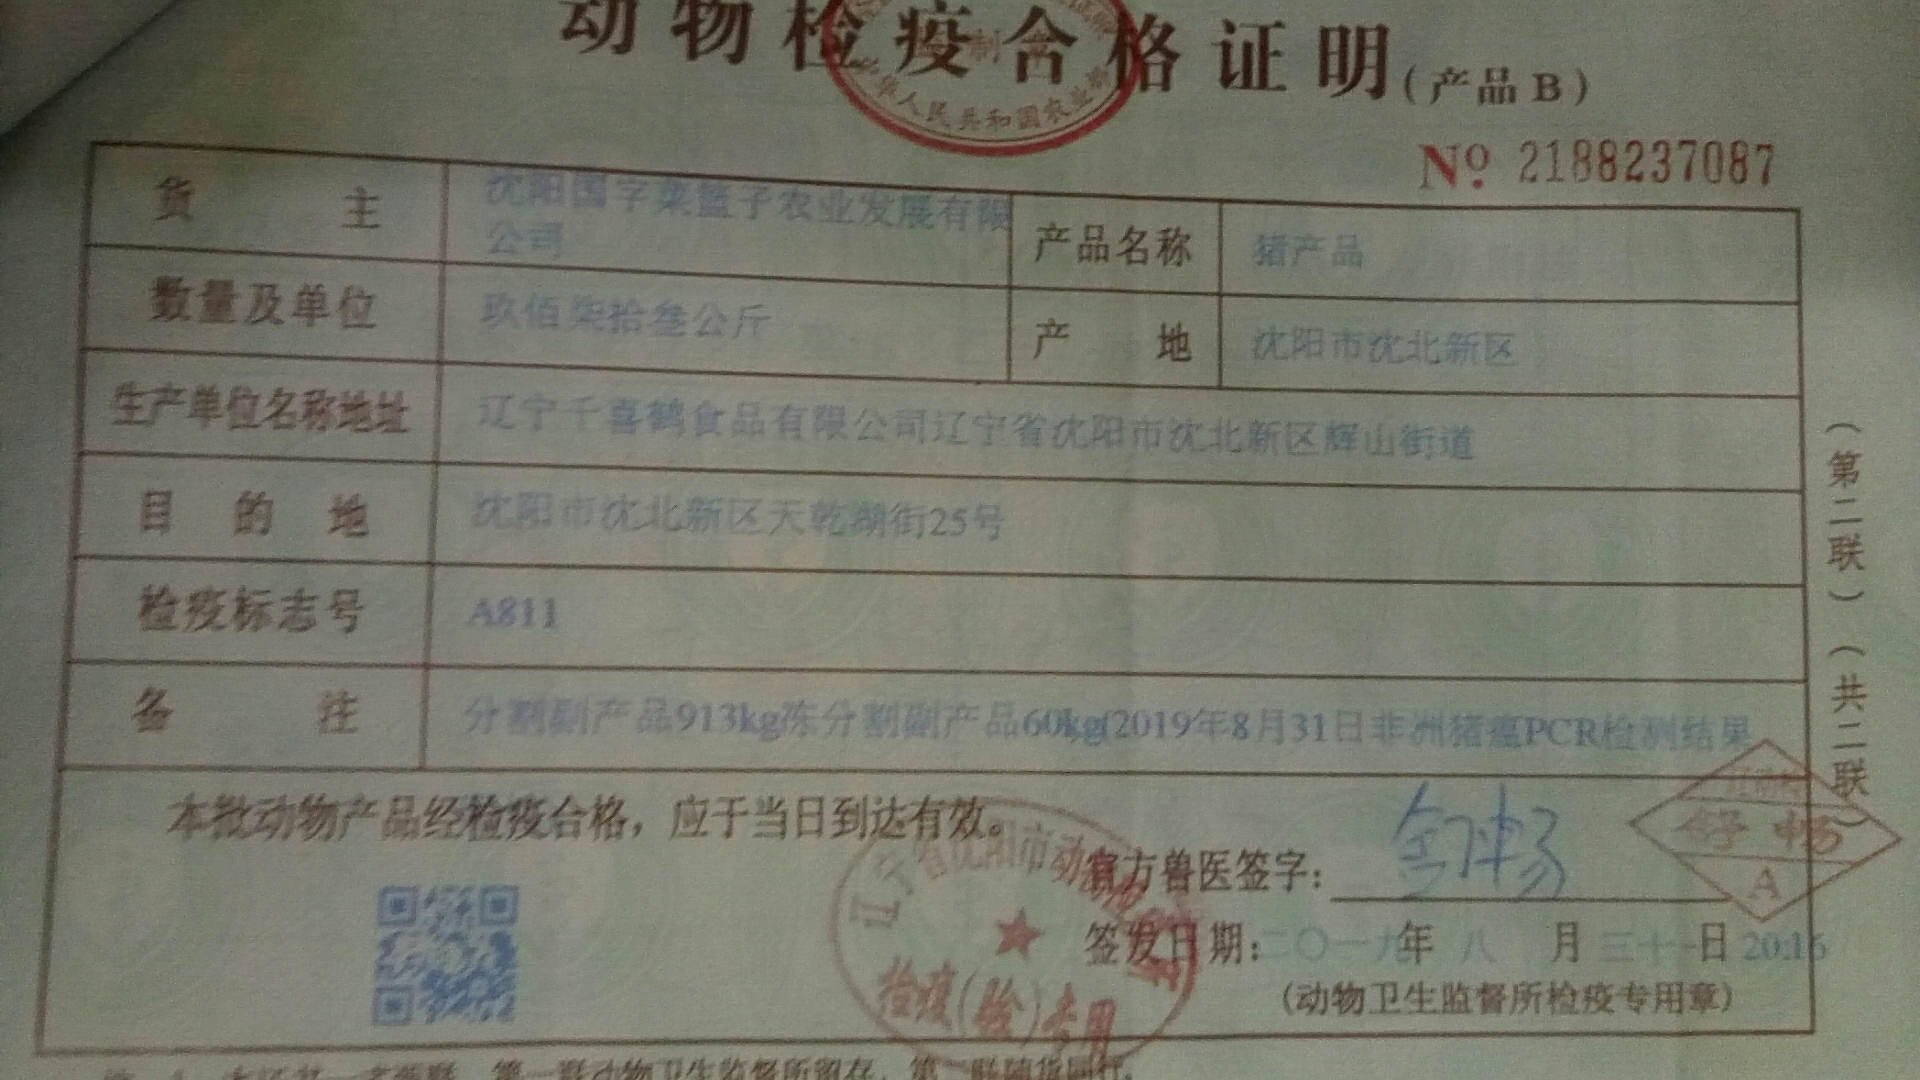 动物检疫合格证明(产品B)
中华人民共和国农业部
制
№ 2188237087
货主
沈阳国字菜篮子农业发展有限
公司
产品名称
猪产品
数量及单位
玖佰柒拾叁公斤
产地
沈阳市沈北新区
生产单位名称地址
辽宁千喜鹤食品有限公司辽宁省沈阳市沈北新区辉山街道
目的地
沈阳市沈北新区天乾湖街25号
检疫标志号
A811
备注
分割副产品913kg冻分割副产品60kg(2019年8月31日非洲猪瘟PCR检测结果
(第二联)(共二联)
本批动物产品经检疫合格，应于当日到达有效。
官方兽医签字：
舒畅
A
签发日期：二〇一九年八月三十一日 20:16
(动物卫生监督所检疫专用章)
辽宁省沈阳市动
检疫(验)专用
第一联动物卫生监督所留存，第二联随货同行。